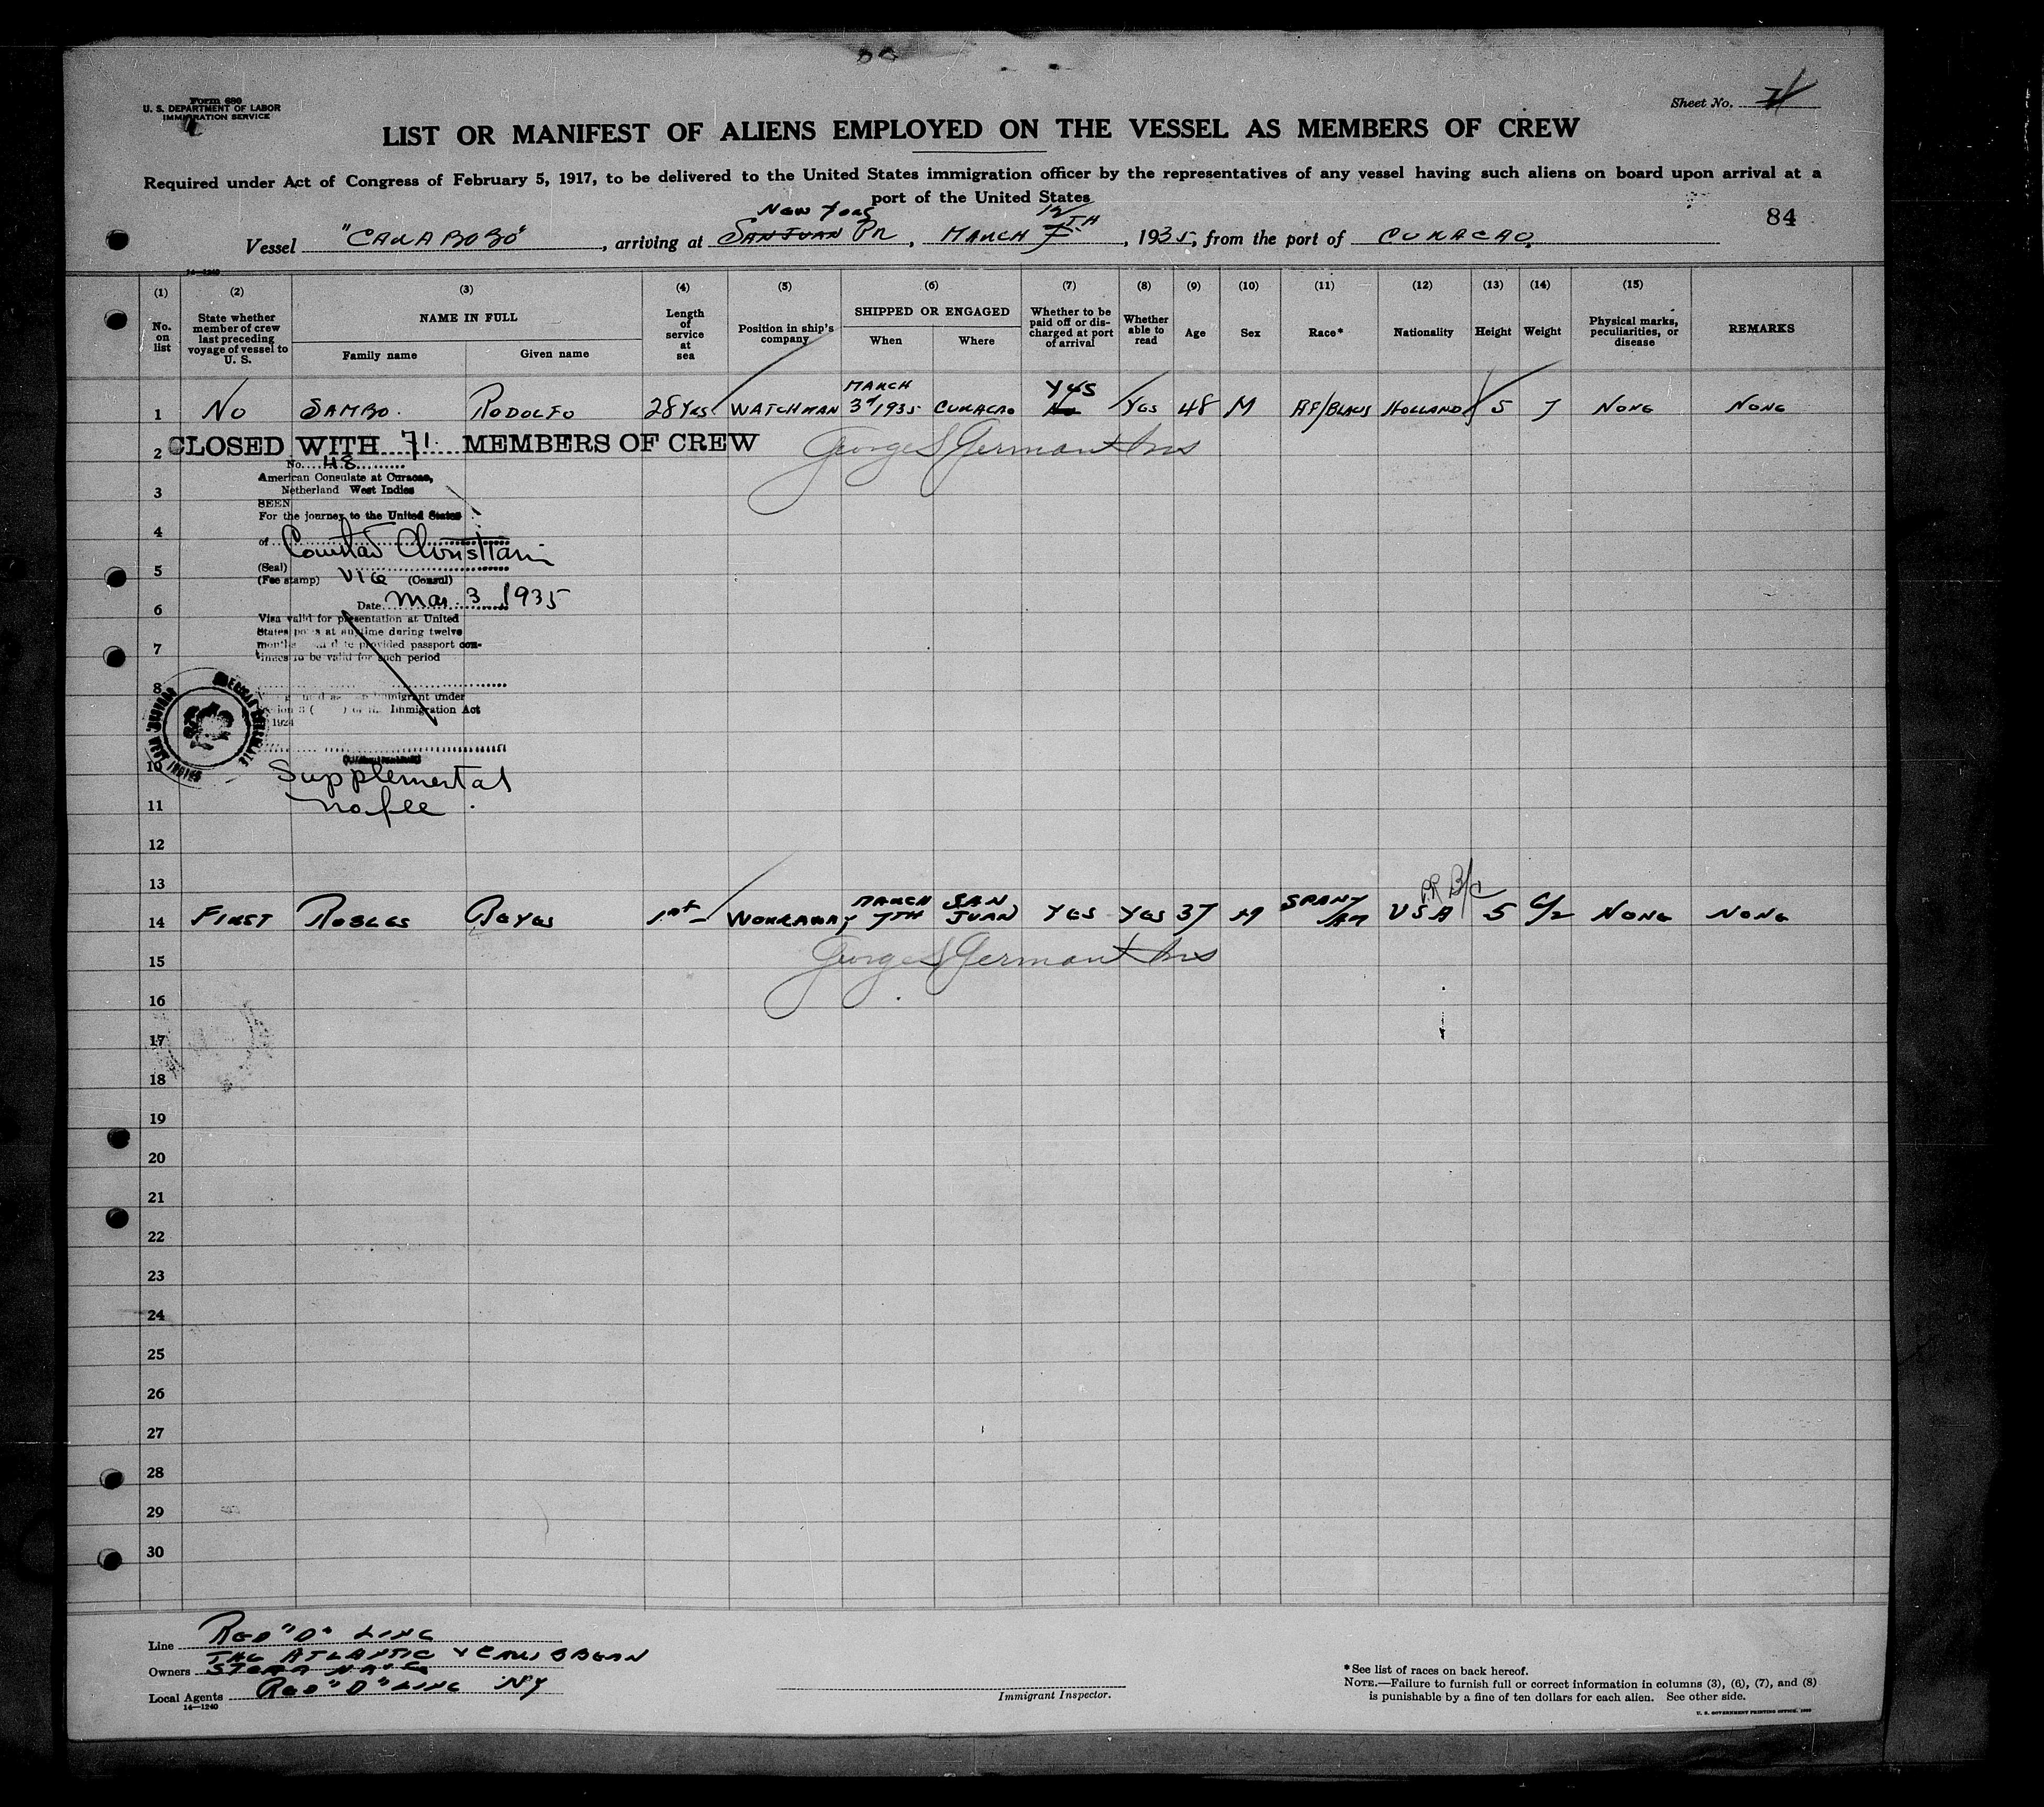 Form 680
U. S. DEPARTMENT OF LABOR
IMMIGRATION SERVICE
Sheet No.
LIST OR MANIFEST OF ALIENS EMPLOYED ON THE VESSEL AS MEMBERS OF CREW
Required under Act of Congress of February 5, 1917, to be delivered to the United States immigration officer by the representatives of any vessel having such aliens on board upon arrival at a
port of the United States
84
New York 12
Vessel "CARABOBO", arriving at SAN JUAN PR, MARCH 7TH, 1935, from the port of CURACAO.
14—1240
(1) (2) (3) (4) (5) (6) (7) (8) (9) (10) (11) (12) (13) (14) (15)
No. on list
State whether member of crew last preceding voyage of vessel to U. S.
NAME IN FULL
Family name
Given name
Length of service at sea
Position in ship's company
SHIPPED OR ENGAGED
When
Where
Whether to be paid off or discharged at port of arrival
Whether able to read
Age
Sex
Race*
Nationality
Height
Weight
Physical marks, peculiarities, or disease
REMARKS
MARCH YES
1 NO SAMBO. RODOLFO 28 YRS WATCHMAN 3d/1935 CURACAO No YES 48 M AF/BLACK HOLLAND 5 7 NONE NONE
2 CLOSED WITH 71 MEMBERS OF CREW George S German Ins
No. 48
American Consulate at Curacao,
3 Netherland West Indies
SEEN
For the journey to the United States
4
of Christiani
5 (Seal)
(Fee stamp) Vice (Consul)
Date Mar 3 1935
6
Visa valid for presentation at United
States ports at any time during twelve
7 months date provided passport con-
tinues to be valid for such period
8
immigrant under
Immigration Act
1924
10
Supplemental
11 no fee.
12
13
PR B/C
MARCH SAN SPAN/
14 FIRST ROBLES REYES 1st WORKAWAY 7TH JUAN YES YES 37 M AM USA 5 6/2 NONE NONE
15 George S German Ins
16
17
18
19
20
21
22
23
24
25
26
27
28
29
30
Line RED "D" LINE
THE ATLANTIC & CARIBBEAN
Owners STEAM NAVG
Local Agents RED "D" LINE NY
14—1240
Immigrant Inspector.
*See list of races on back hereof.
NOTE.—Failure to furnish full or correct information in columns (3), (6), (7), and (8)
is punishable by a fine of ten dollars for each alien. See other side.
U. S. GOVERNMENT PRINTING OFFICE